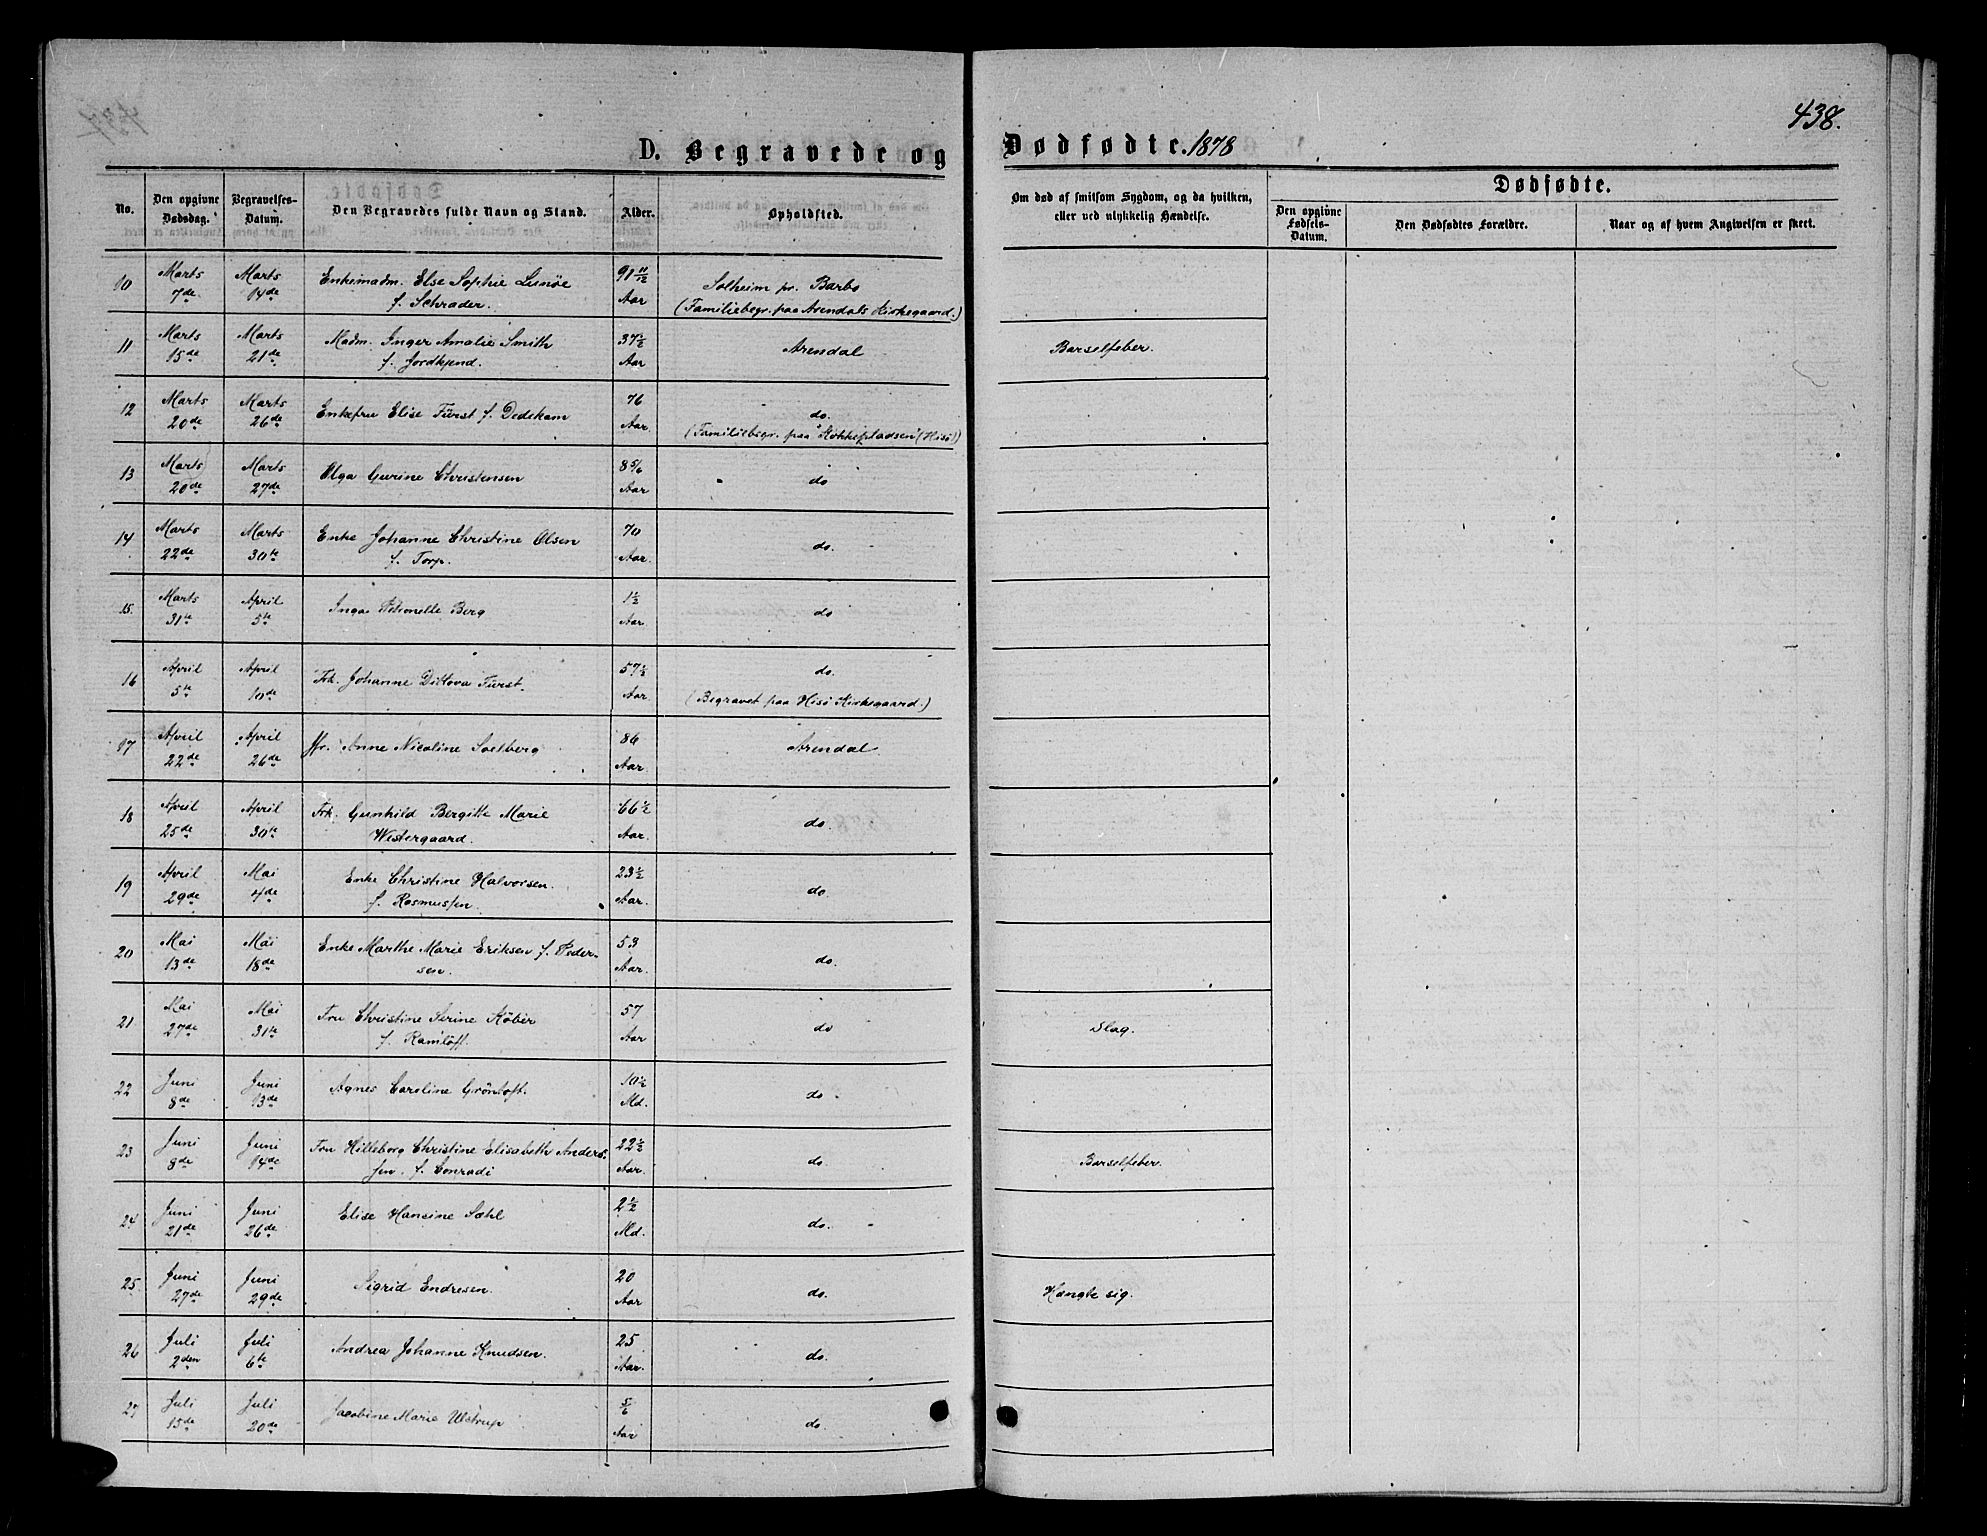 438.
D. Begravede og Dødfødte. 1878
No. Den opgivne Dødsdag. Begravelses-Datum. Den Begravedes fulde Navn og Stand. Alder. Opholdsted. Om død af smitsom Sygdom, og da hvilken, eller ved ulykkelig Hændelse. Dødfødte.
Den opgivne Fødsels-Datum. Den Dødfødtes Forældre. Naar og af hvem Angivelsen er skeet.
10 Marts 7de Marts 14de Enkemadm. Else Sophie Lunöe 91 11/12 Aar Solheim pr. Barbo
f. Schrader. (Familiebegr. paa Arendals Kirkegaard.)
11 Marts 15de Marts 21de Madm. Inger Amalie Smith 37½ Aar Arendal Barselfeber.
f. Jordkjend.
12 Marts 20de Marts 26de Enkefru Elise Fürst f. Dedekam 76 Aar. do.
(Familiebegr. paa "Kokkepladsen" (Hisö))
13 Marts 20de Marts 27de Olga Gurine Christensen 8 5/6 Aar do
14 Marts 22de Marts 30te Enke Johanne Christine Olsen 70 Aar. do.
f. Torp.
15. Marts 31te April 5te Inga Petronelle Berg 1½ Aar. do
16 April 5te April 10de Frk. Johanne Ditlova Fürst. 57½ Aar. do.
(Begravet paa Hisö Kirkegaard.)
17 April 22de April 26de Jfr. Anne Nicoline Soelberg 86 Aar. Arendal
18 April 25de April 30te Frk. Gunhild Bergitte Marie 66½ Aar. do.
Westergaard.
19 April 29de Mai 4de Enke Christine Halvorsen. 23½ Aar. do.
f. Rasmussen.
20 Mai 13de Mai 18de Enke Marthe Marie Eriksen f. Peder- 53 Aar. do.
sen.
21 Mai 27de Mai 31te Fru Christine Serine Köber 57 Aar do Slag.
f. Ramlöff.
22 Juni 8de Juni 13de Agnes Caroline Grönloft. 10½ Md. do.
23 Juni 8de Juni 14de Fru Hilleborg Christine Elisabeth Anders- 22½ Aar. do. Barselfeber.
sen. f. Conradi
24 Juni 21de Juni 26de Elise Hansine Sæhl 2½ Md. do.
25. Juni 27de Juni 29de Sigrid Endresen. 20 Aar do. Hængte sig.
26 Juli 2den Juli 6te Andrea Johanne Knudsen. 25 Aar. do.
27 Juli 15de Juli 20de Jacobine Marie Ulstrup 5/6 Aar do.